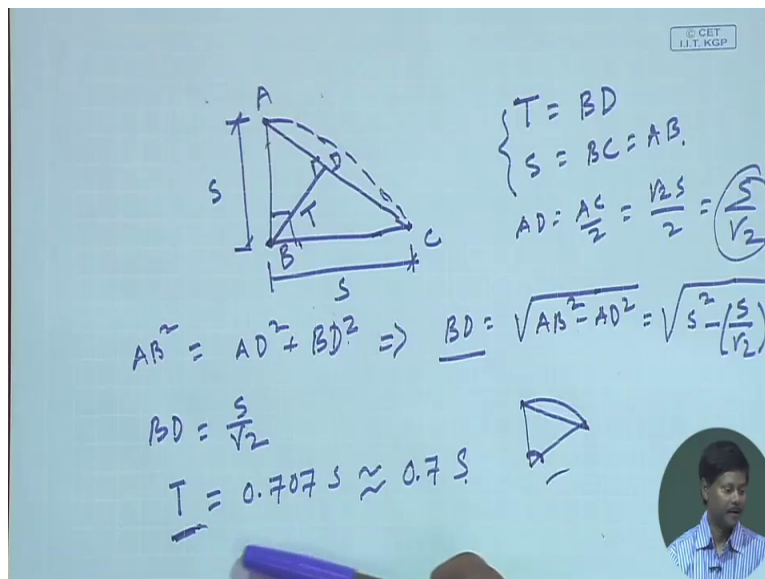 © CET
I.I.T. KGP
A
S
T
B
D
C
S
T = BD
S = BC = AB.
AD = AC/2 = √2S/2 = S/√2
AB² = AD² + BD² => BD = √(AB² - AD²) = √(S² - (S/√2)
BD = S/√2
T = 0.707 S ≈ 0.7 S.